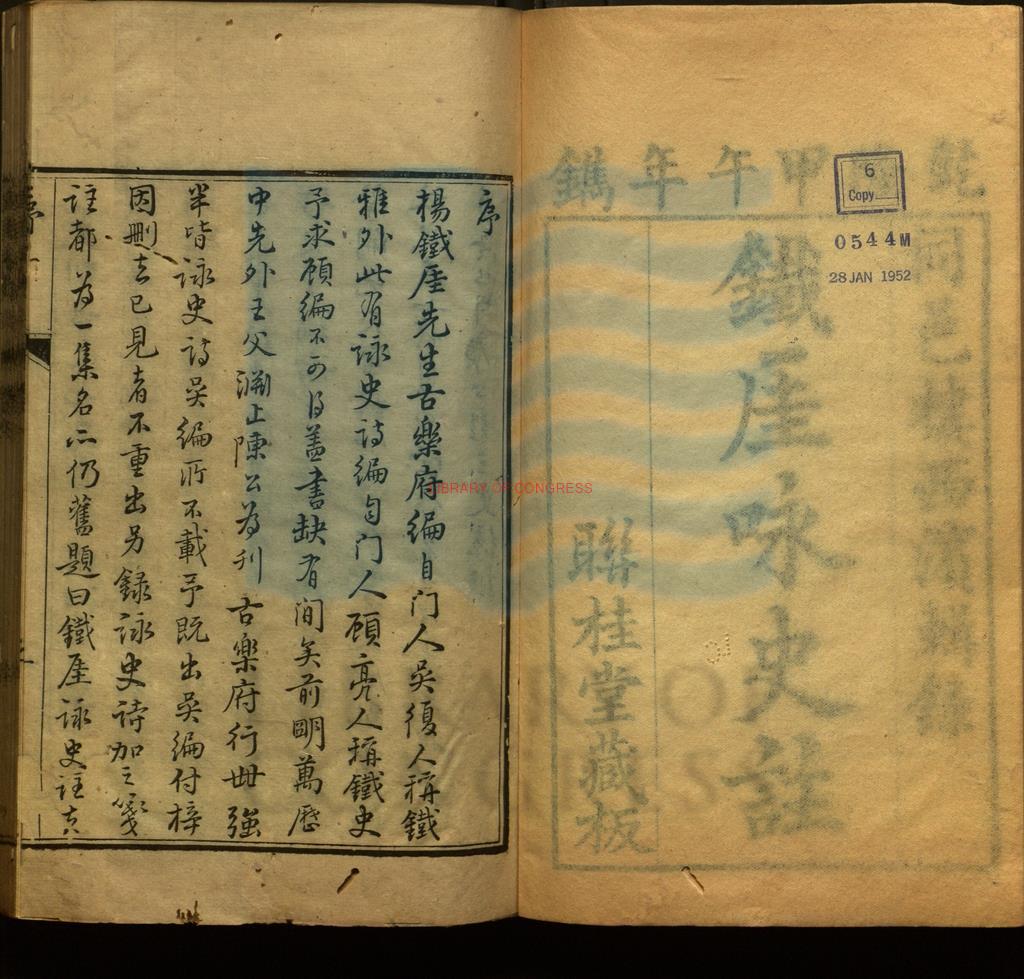 乾隆甲午年鐫
同邑樓卜瀍輯錄
鐵厓咏史註
聯桂堂藏板
6
Copy
0544M
28 JAN 1952
LIBRARY OF CONGRESS
序
楊鐵厓先生古樂府編自门人吳復人稱鐵
雅外此有詠史詩編自门人顧亮人稱鐵史
予求顧編不可得盖書缺有间矣前明萬歷
中先外王父淵止陳公為刊古樂府行世強
半皆詠史詩吳編所不載予既出吳編付梓
因刪去已見者不重出另録詠史詩加之箋
註都為一集名二仍舊題曰鐵厓詠史註古
序